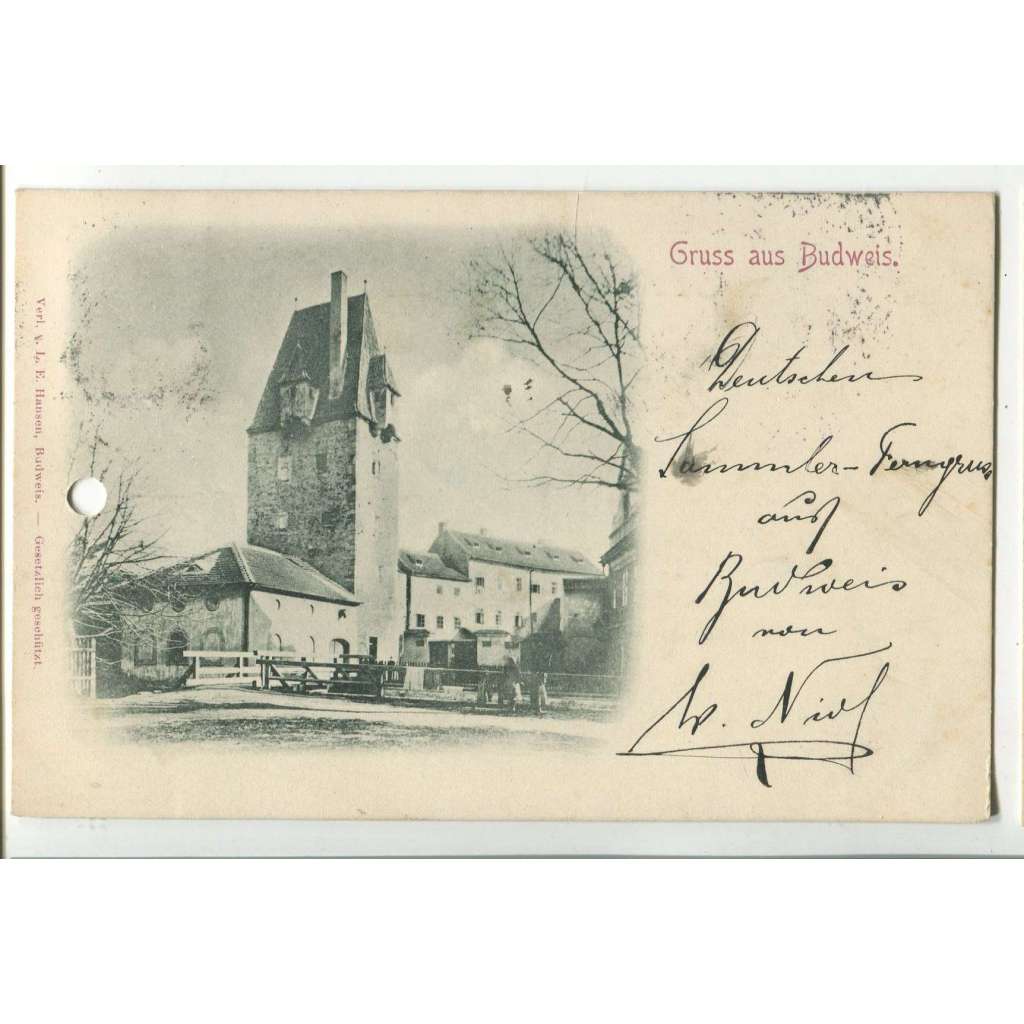 Gruss aus Budweis.
Deutschen
Sammler-Ferngruss
aus
Budweis
von
W.
Verl. v. L. E. Hansen, Budweis. — Gesetzlich geschützt.